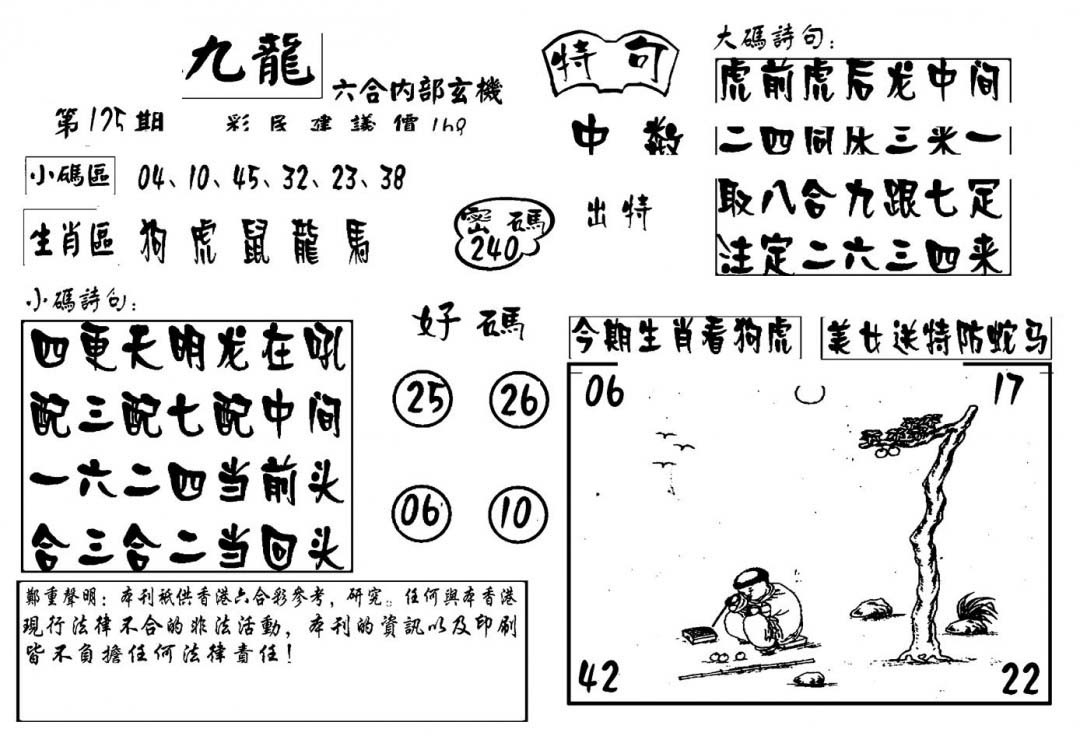 九龍
六合内部玄機
第125期 彩民建議價160
小碼區 04、10、45、32、23、38
生肖區 狗 虎 鼠 龍 馬
密碼
240
特句
中数
出特
大碼詩句:
虎前虎后龙中间
二四同杀三来一
取八合九跟七定
注定二六三四来
小碼詩句:
四更天明龙在吼
配三配七配中间
一六二四当前头
合三合二当回头
好碼
25 26
06 10
今期生肖看狗虎
美女送特防蛇马
06 17
42 22
鄭重聲明:本刊祇供香港六合彩參考,研究。任何與本香港
現行法律不合的非法活動,本刊的資訊以及印刷
皆不負擔任何法律責任!